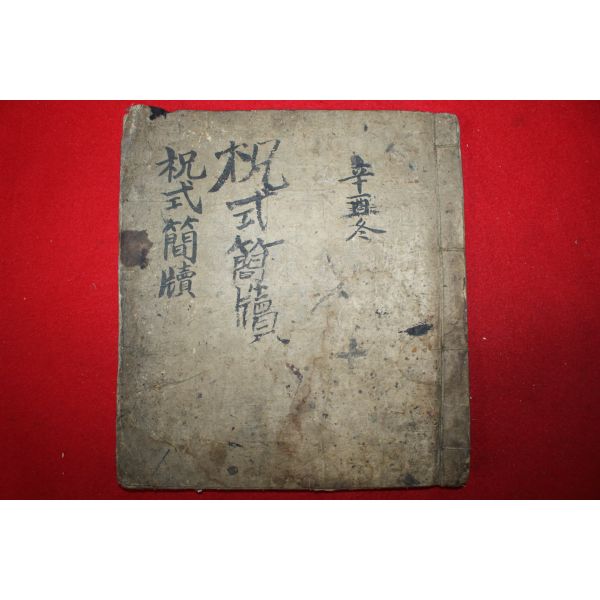 辛酉冬
祝式簡牘
祝式簡牘